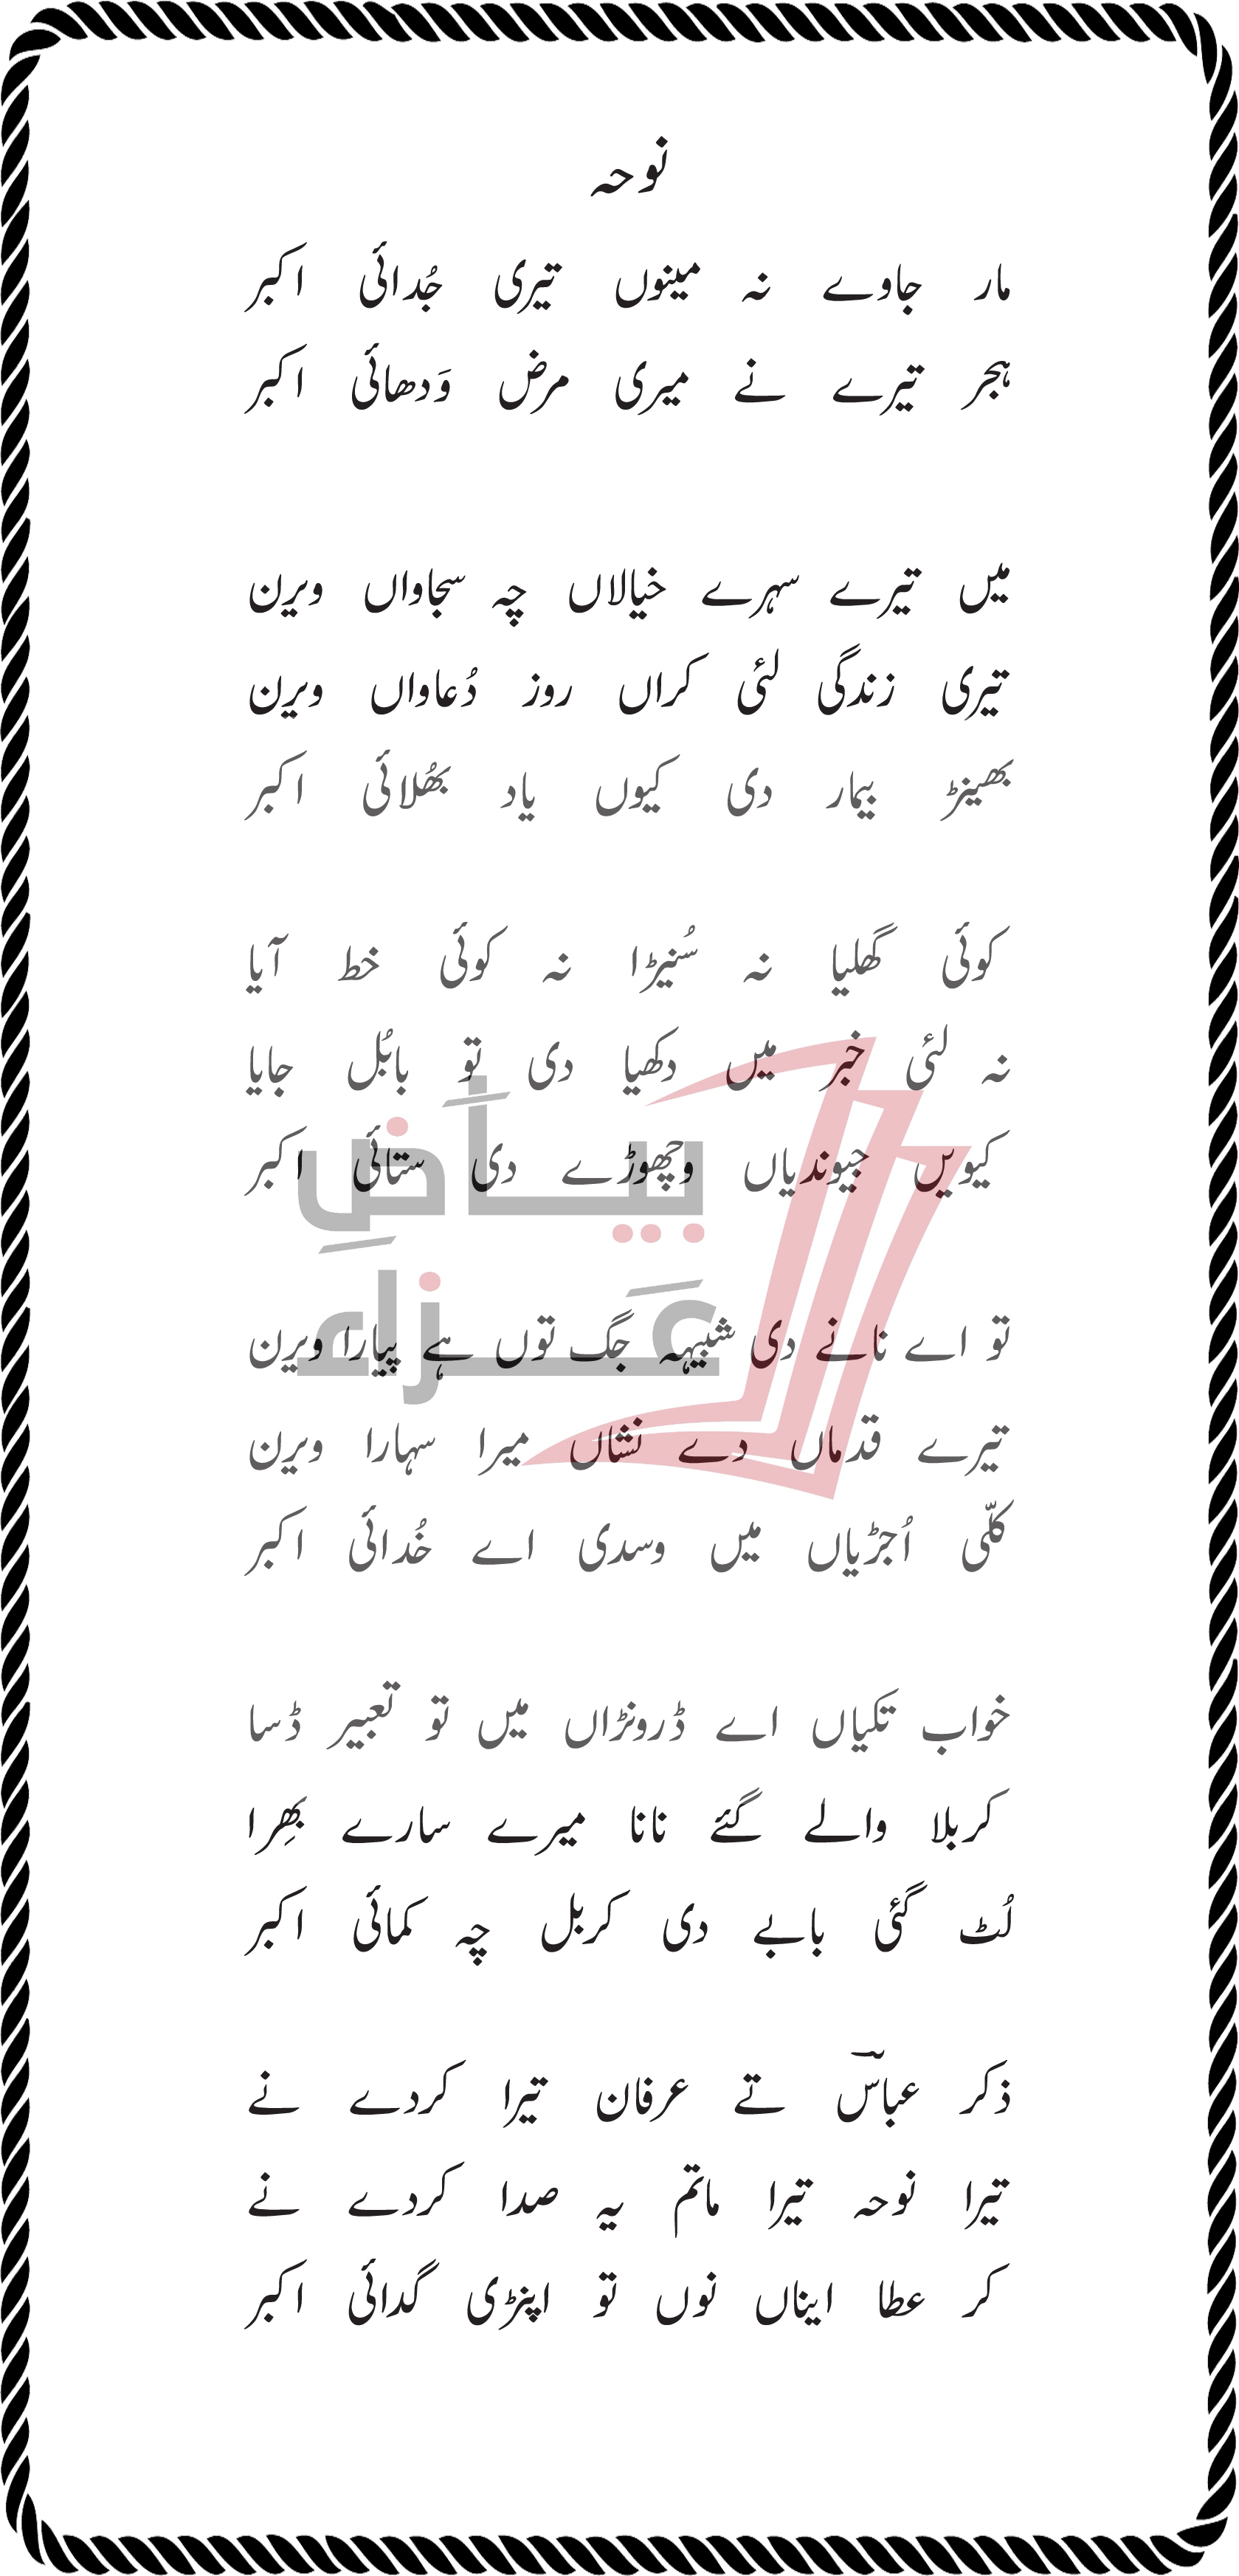 نوحہ
مار جاوے نہ مینوں تیری جُدائی اکبر
ہجر تیرے نے میری مرض وَدھائی اکبر
میں تیرے سہرے خیالاں چہ سجاواں ویرن
تیری زندگی لئی کراں روز دُعاواں ویرن
بھینڑ بیمار دی کیوں یاد بھُلائی اکبر
کوئی گھلیا نہ سُنیڑا نہ کوئی خط آیا
نہ لئی خبر میں دکھیا دی تو بابُل جایا
کیویں جیوندیاں وچھوڑے دی ستائی اکبر
تو اے نانے دی شبیہہ جگ توں ہے پیارا ویرن
تیرے قدماں دے نشاں میرا سہارا ویرن
کلّی اُجڑیاں میں وسدی اے خُدائی اکبر
خواب تکیاں اے ڈرونڑاں میں تو تعبیر ڈسا
کربلا والے گئے نانا میرے سارے بھِرا
لُٹ گئی بابے دی کربل چہ کمائی اکبر
ذکر عباسؔ تے عرفان تیرا کردے نے
تیرا نوحہ تیرا ماتم یہ صدا کردے نے
کر عطا ایناں نوں تو اپنڑی گدائی اکبر
بیاضِ
عَزاء